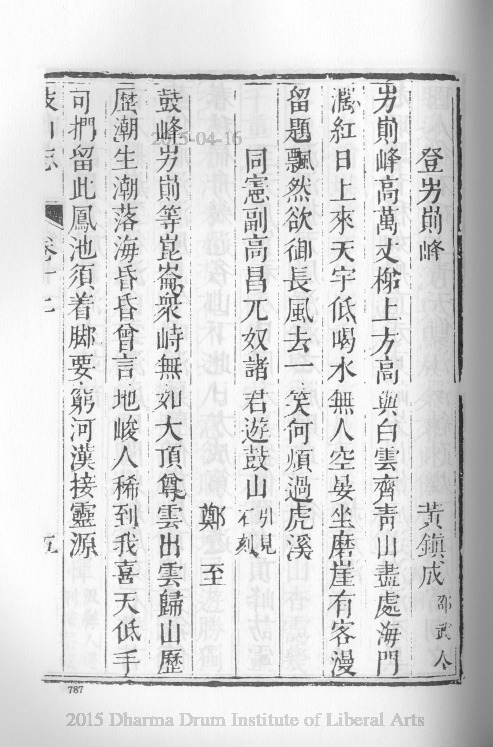 登屴崱峰 黃鎮成 邵武人
屴崱峰高萬丈梯上方高與白雲齊青山盡處海門
濶紅日上來天宇低喝水無人空晏坐磨崖有客漫
留題飄然欲御長風去一笑何煩過虎溪
同憲副高昌兀奴諸君遊鼓山 引見石刻
鄭至
鼓峰屴崱等崑崙衆峙無如大頂尊雲出雲歸山歷
歷潮生潮落海昏昏曾言地峻人稀到我喜天低手
可捫留此鳳池須着脚要窮河漢接靈源
鼓山志 卷十二 五
787
2015-04-16
2015 Dharma Drum Institute of Liberal Arts